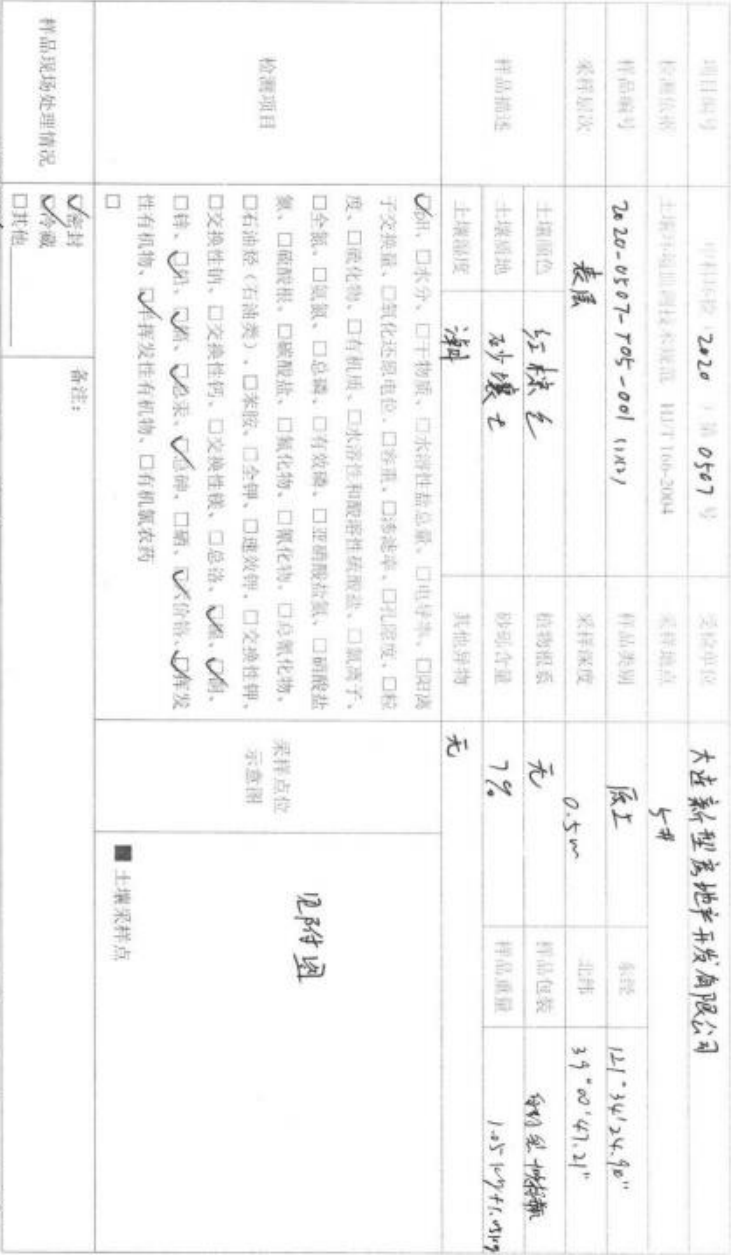 项目编号 2020 第 0507 号 受检单位 大连新型房地产开发有限公司
检测依据 土壤环境监测技术规范 HJ/T 166-2004 采样地点 5#
样品编号 2020-0507-T05-001 样品类别 原土 东经 121°34'24.90"
采样层次 表层 采样深度 0.5m 北纬 39°00'47.21"
样品描述 土壤颜色 红棕色 植物根系 无 样品包装
土壤质地 砂壤土 砂砾含量 7% 样品重量
土壤湿度 潮 其他异物 无
检测项目
☑pH、□水分、□干物质、□水溶性盐总量、□电导率、□阳离
子交换量、□氧化还原电位、□容重、□渗滤率、□孔隙度、□粒
度、□硫化物、□有机质、□水溶性和酸溶性硫酸盐、□氯离子、
□全氮、□氨氮、□总磷、□有效磷、□亚硝酸盐氮、□硝酸盐
氮、□硫酸根、□碳酸盐、□氟化物、□氰化物、□总氰化物、
□石油烃(石油类)、□苯胺、□全钾、□速效钾、□交换性钾、
□交换性钠、□交换性钙、□交换性镁、□总铬、☑镉、☑铜、
□锌、☑铅、☑镍、☑总汞、☑总砷、□硒、☑六价铬、☑挥发
性有机物、☑半挥发性有机物、□有机氯农药
□
采样点位
示意图
见附图
■ 土壤采样点
样品现场处理情况
☑密封
☑冷藏
□其他
备注: